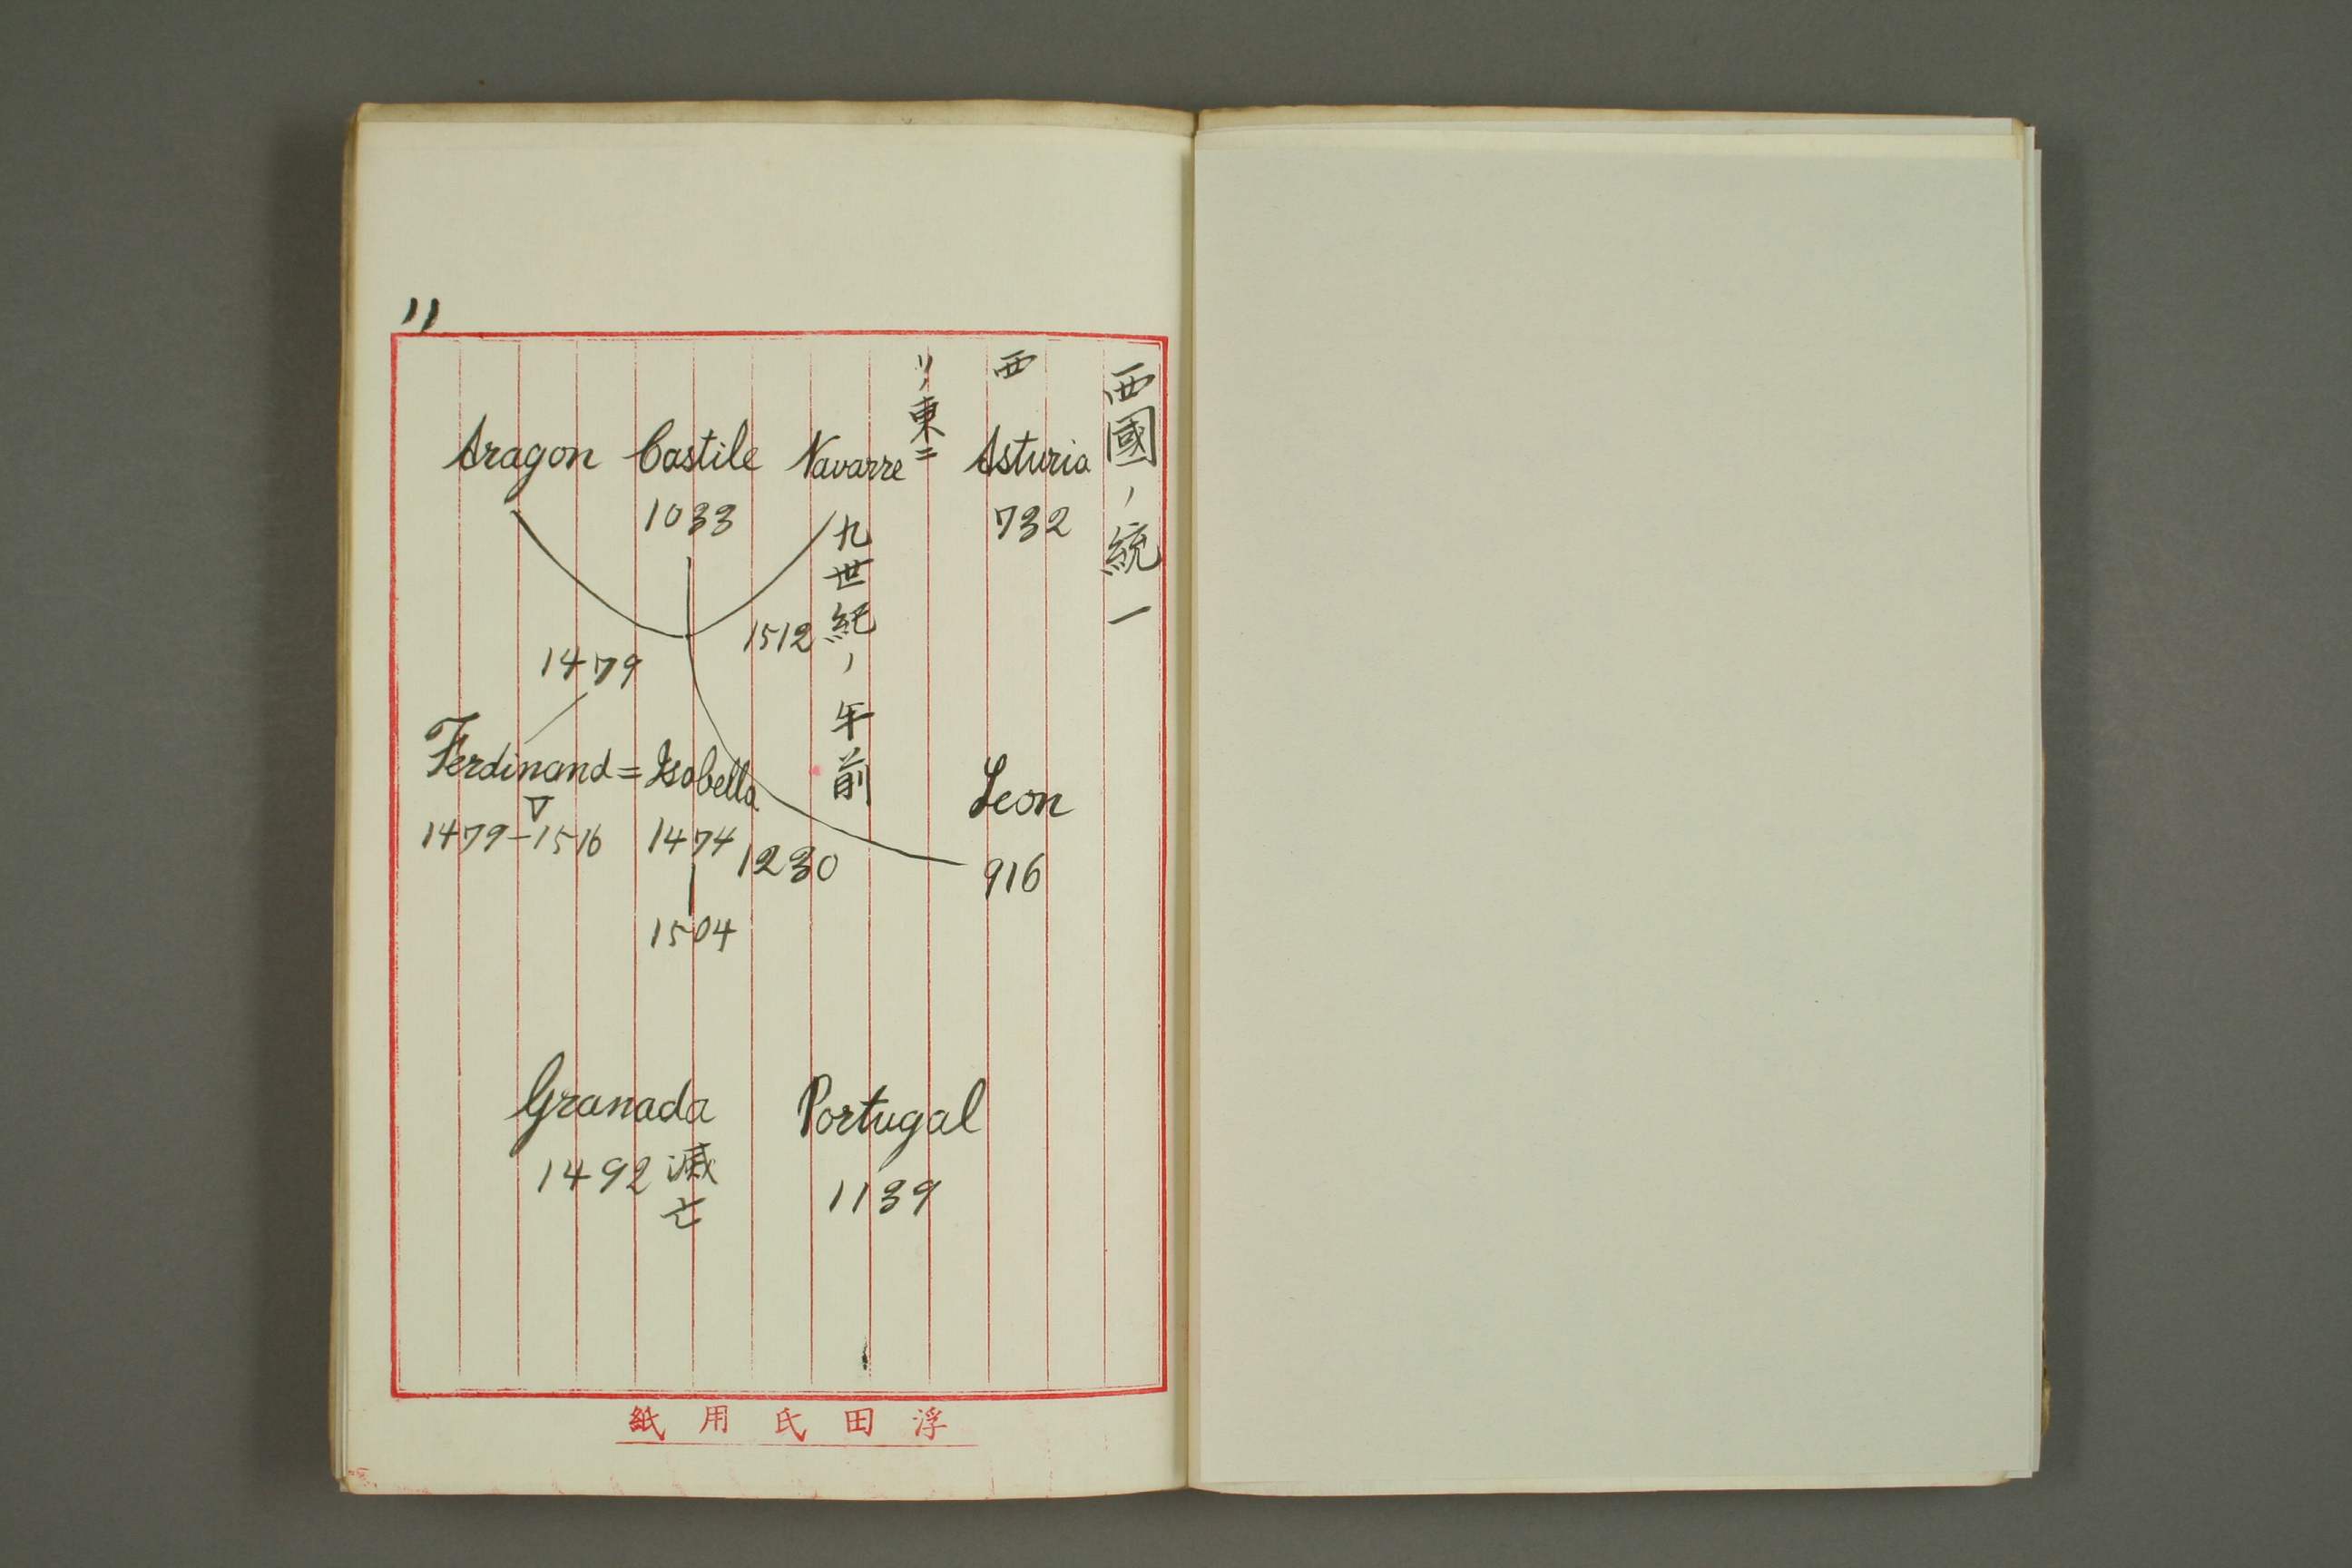 11
西國ノ統一
西
Asturia
732
リノ東ニ
Navarre
九世紀ノ午前
Castile
1033
Aragon
1512
1479
Ferdinand = Isabella
▽
1479-1516
1474
|
1504
1230
Leon
916
Granada
1492 滅亡
Portugal
1139
浮田氏用紙